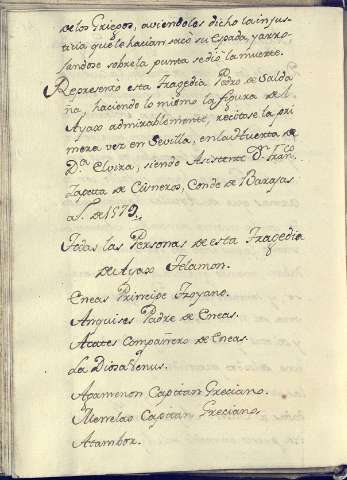 de los Griegos, aviendoles dicho la injus-
ticia que le hacian sacò su espada, y arro-
jandose sobre la punta se diò la muerte.
Representò esta Tragedia Pedro de Salda-
ña, haciendo lo mismo la figura de
Ayax admirablemente, recitase la pri-
mera vez en Sevilla, en la Huerta de
D.ª Elvira, siendo Asistente D. Fran.co
Zapata de Cisneros, Conde de Barajas
a.S. de 1579.
Todas las Personas de esta Tragedia
de Ayax Telamon.
Eneas Principe Troyano.
Anquises Padre de Eneas.
Acates Compañero de Eneas.
La Diosa Venus.
Agamenon Capitan Greciano.
Menelao Capitan Greciano.
Atambor.